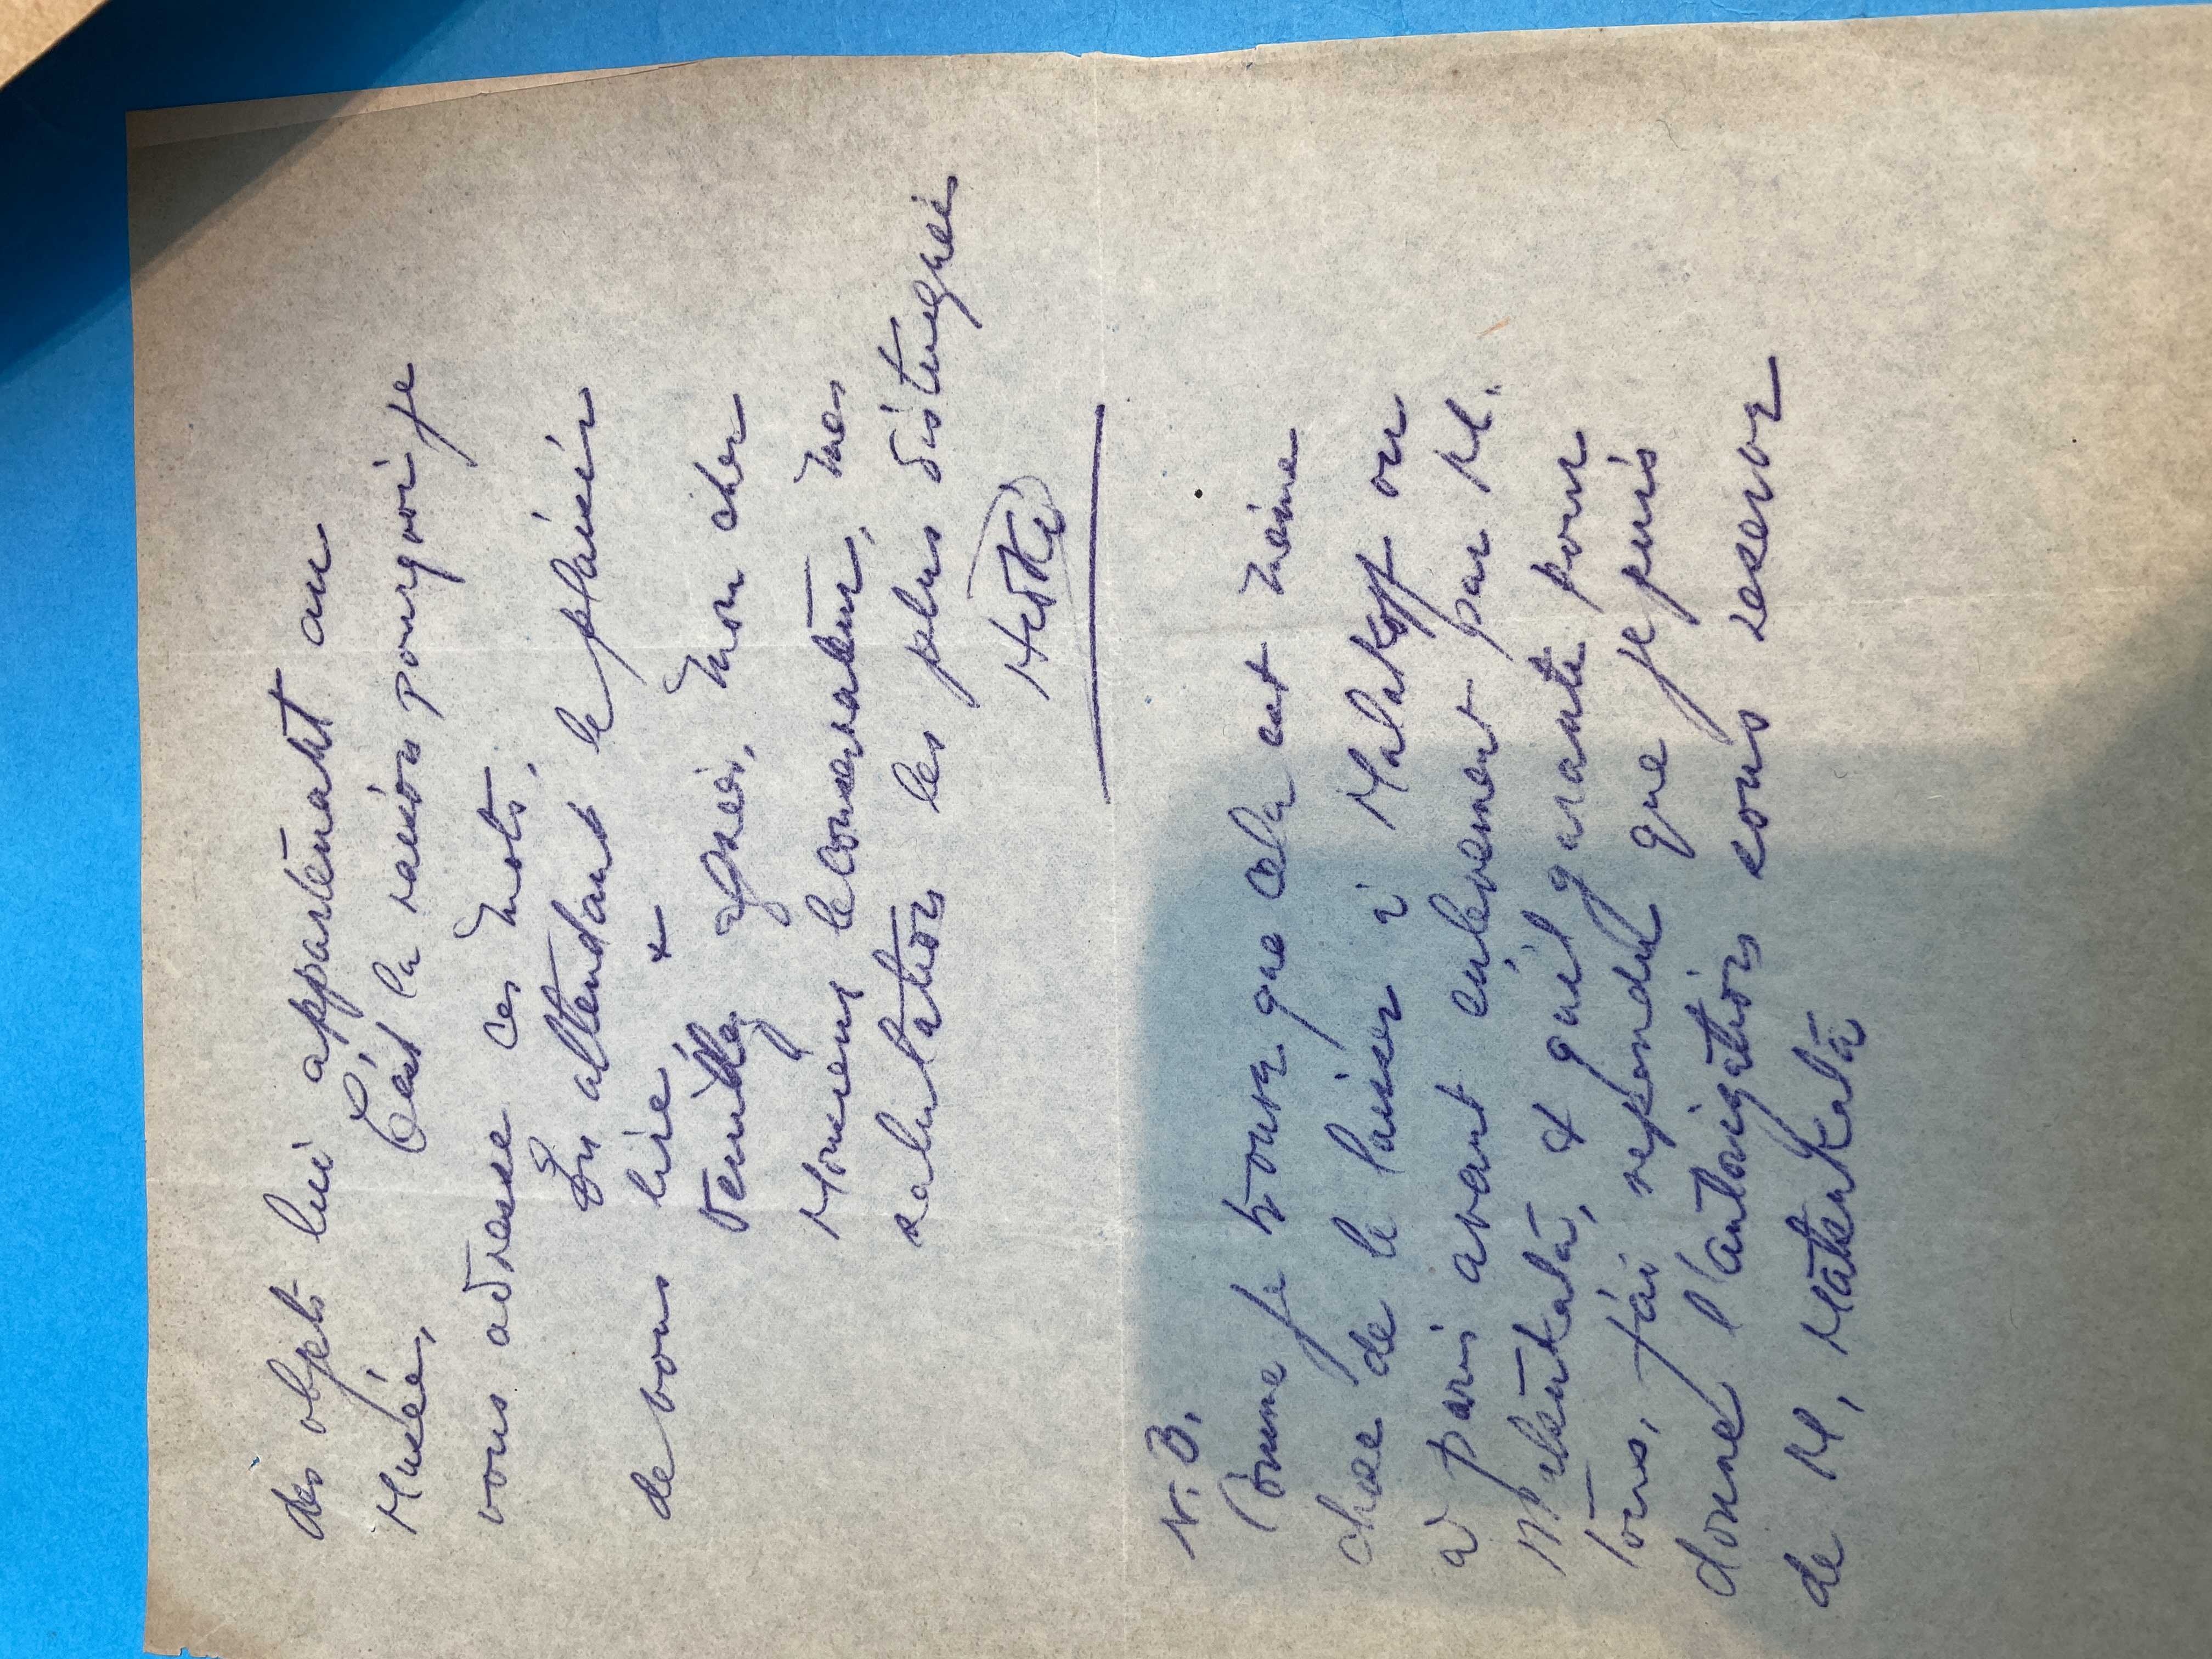 des objets lui appartenant au
Musée,
C'est la raison pourquoi je
vous adresse ces mots,
En attendant le plaisir
de vous lire &
Veuillez agréer, Mon cher
Monsieur le Conservateur, mes
salutations les plus distinguées
N.B.
Comme je trouve que cela est même
chose de le laisser à Malakoff ou
à paris avant enlevement par M.
& qu'il garante pour
tous, j'ai repondu que je puis
donner l'autorisation sous reserve
de M,